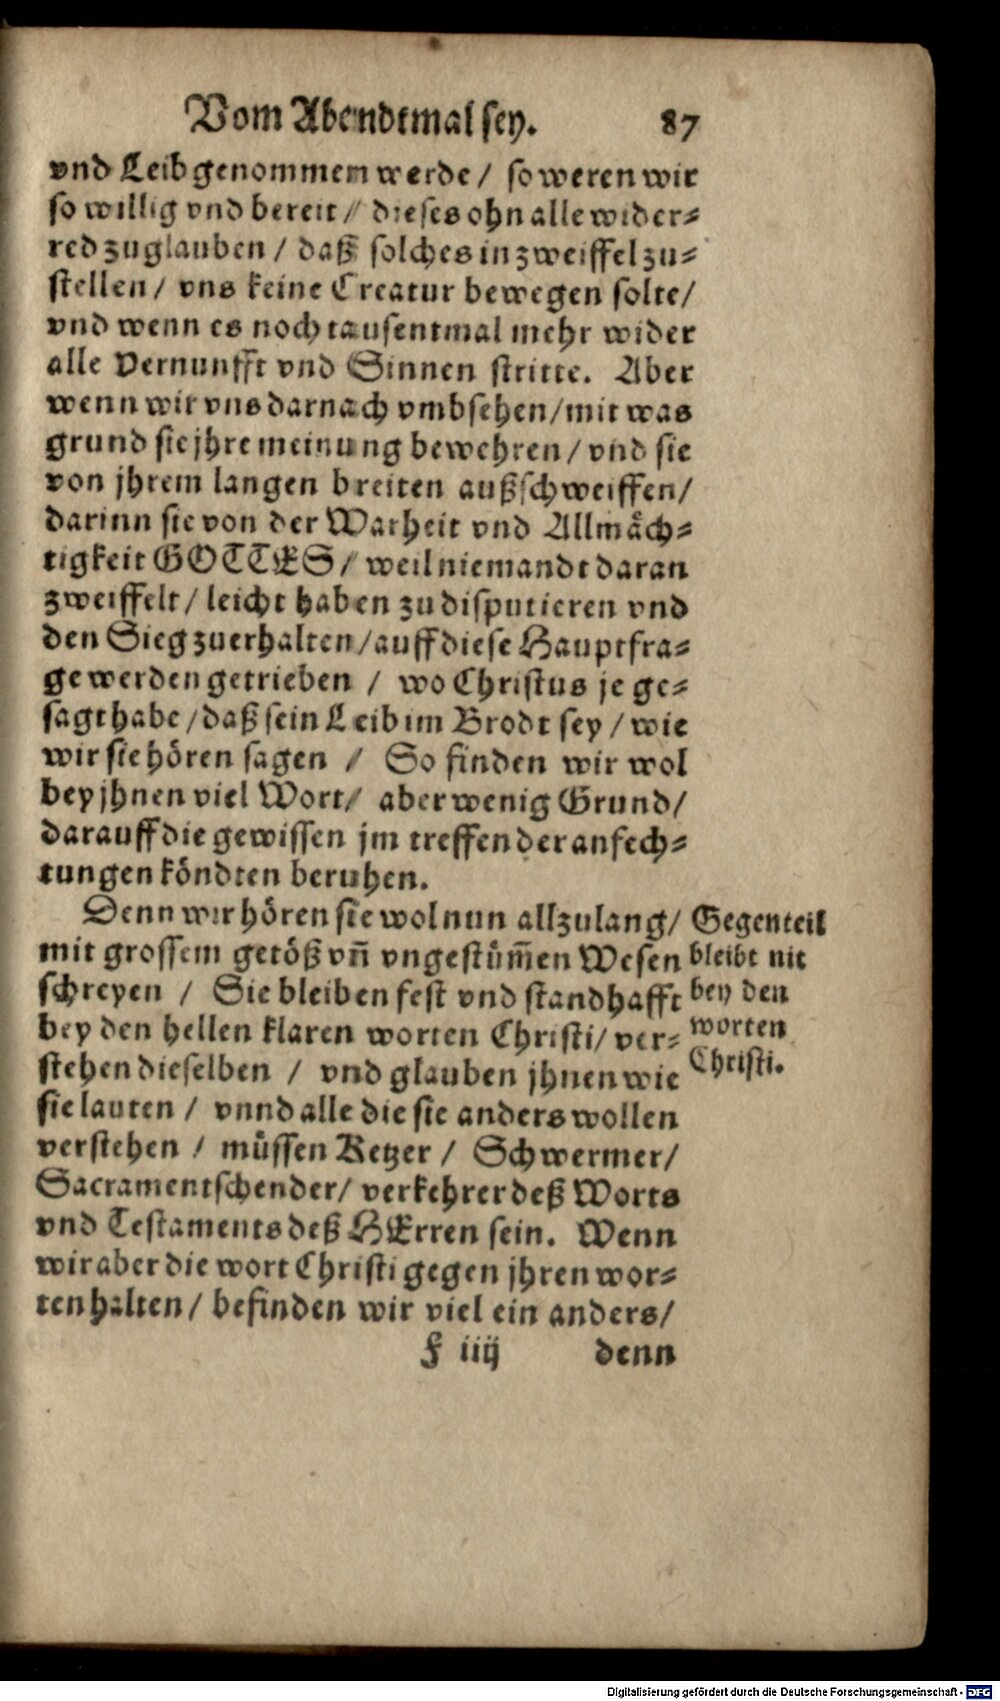 Vom Abendtmal sey. 87
vnd Leib genommen werde / so weren wir
so willig vnd bereit / dieses ohn alle wider⸗
red zuglauben / daß solches in zweiffel zu⸗
stellen / vns keine Creatur bewegen solte /
vnd wenn es noch tausentmal mehr wider
alle Vernunfft vnd Sinnen stritte. Aber
wenn wir vns darnach vmbsehen / mit was
grund sie jhre meinung bewehren / vnd sie
von jhrem langen breiten außschweiffen /
darinn sie von der Warheit vnd Allmäch⸗
tigkeit GOTTES / weil niemandt daran
zweiffelt / leicht haben zu disputieren vnd
den Sieg zuerhalten / auff diese Hauptfra⸗
ge werden getrieben / wo Christus je ge⸗
sagt habe / daß sein Leib im Brodt sey / wie
wir sie hören sagen / So finden wir wol
bey jhnen viel Wort / aber wenig Grund /
darauff die gewissen jm treffen der anfech⸗
tungen köndten beruhen.
Denn wir hören sie wol nun allzulang /
mit grossem getöß vñ vngestüm̃en Wesen
schreyen / Sie bleiben fest vnd standhafft
bey den hellen klaren worten Christi / ver⸗
stehen dieselben / vnd glauben jhnen wie
sie lauten / vnnd alle die sie anders wollen
verstehen / müssen Ketzer / Schwermer /
Sacramentschender / verkehrer deß Worts
vnd Testaments deß HErren sein. Wenn
wir aber die wort Christi gegen jhren wor⸗
ten halten / befinden wir viel ein anders /
F iiij denn
Gegenteil
bleibt nit
bey den
worten
Christi.
Digitalisierung gefördert durch die Deutsche Forschungsgemeinschaft - DFG